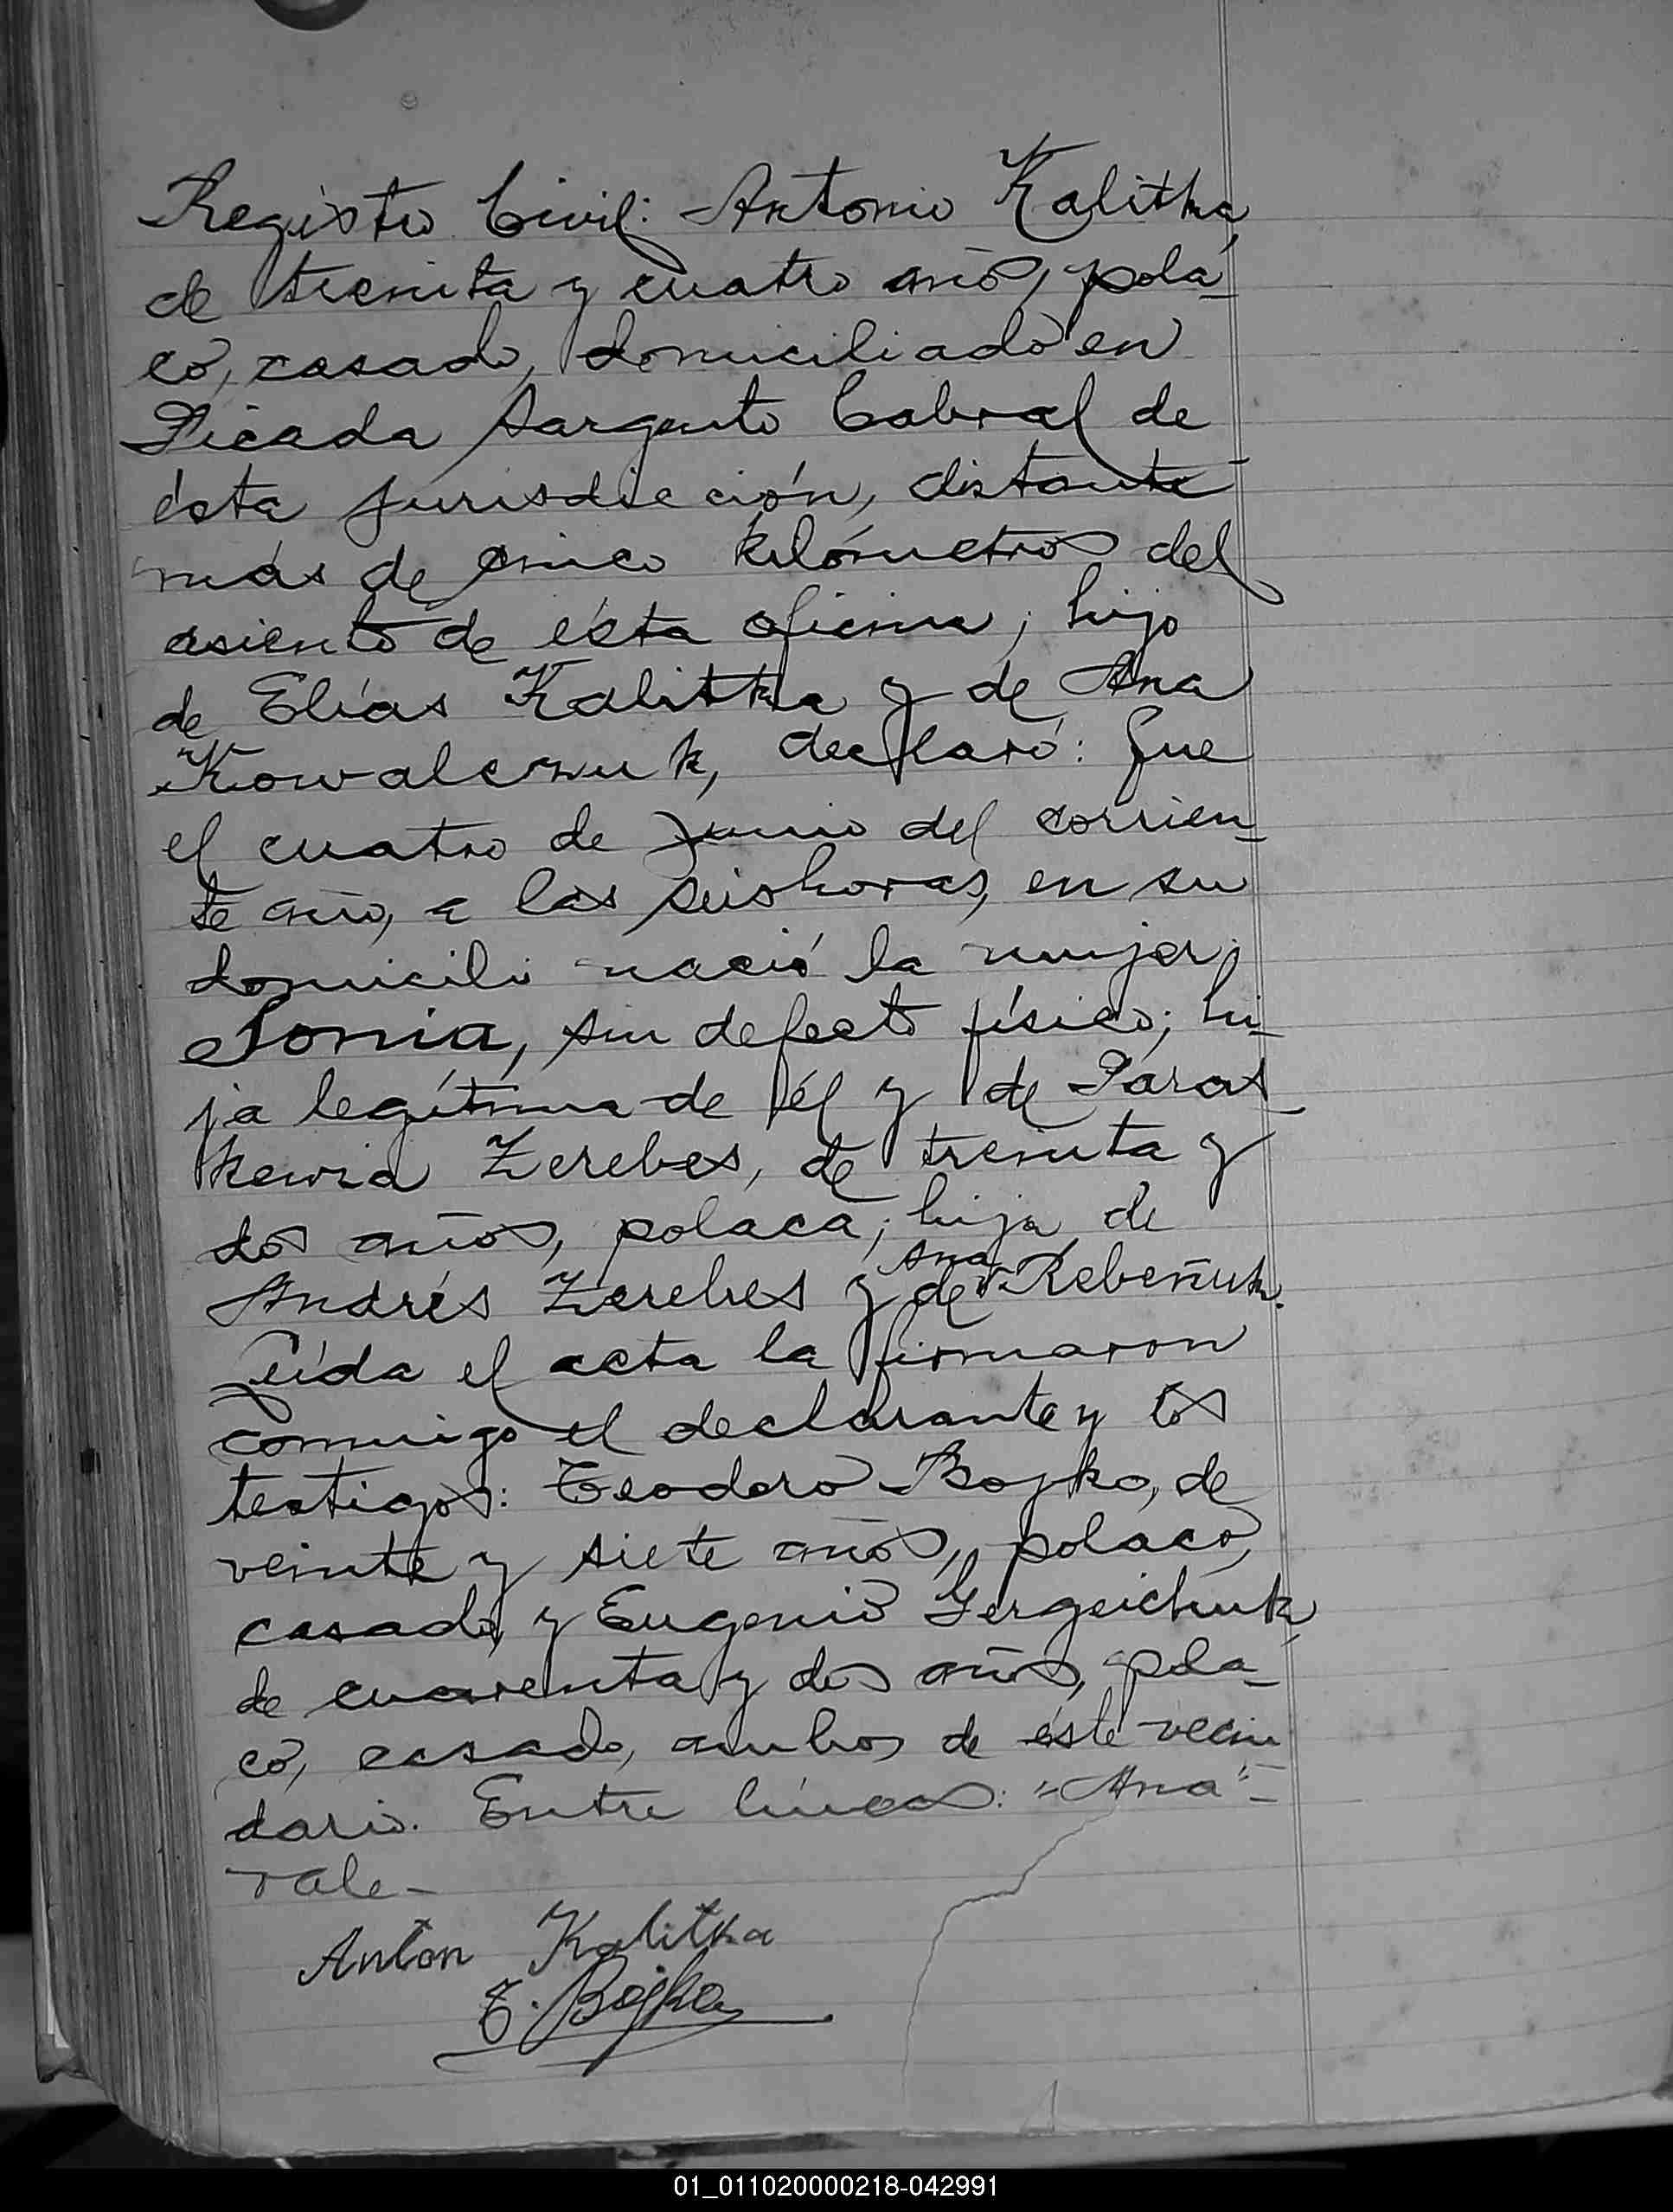 Registro Civil: Antonio Kalitka,
de treinta y cuatro años, pola-
co, casado, domiciliado en
Picada Sargento Cabral de
ésta jurisdicción, distante
más de cinco kilómetros del
asiento de ésta oficina; hijo
de Elías Kalitka y de Ana
Kowalczuk, declaró: Que
el cuatro de junio del corrien-
te año, a las seis horas, en su
domicilio nació la mujer:
Sonia, sin defecto físico; hi-
ja legítima de él y de Paras-
kewia Zerebes, de treinta y
dos años, polaca; hija de
Ana
Andrés Zerebes y de Rebeñuk.
Leída el acta la firmaron
conmigo el declarante y los
testigos: Teodoro Bojko, de
veinte y siete años, polaco,
casado, y Eugenio Gergeichuk,
de cuarenta y dos años, pola-
co, casado, ambos de éste vecin
dario. Entre líneas: "Ana"-
vale-
Anton Kalitka
T. Bojko
01_011020000218-042991